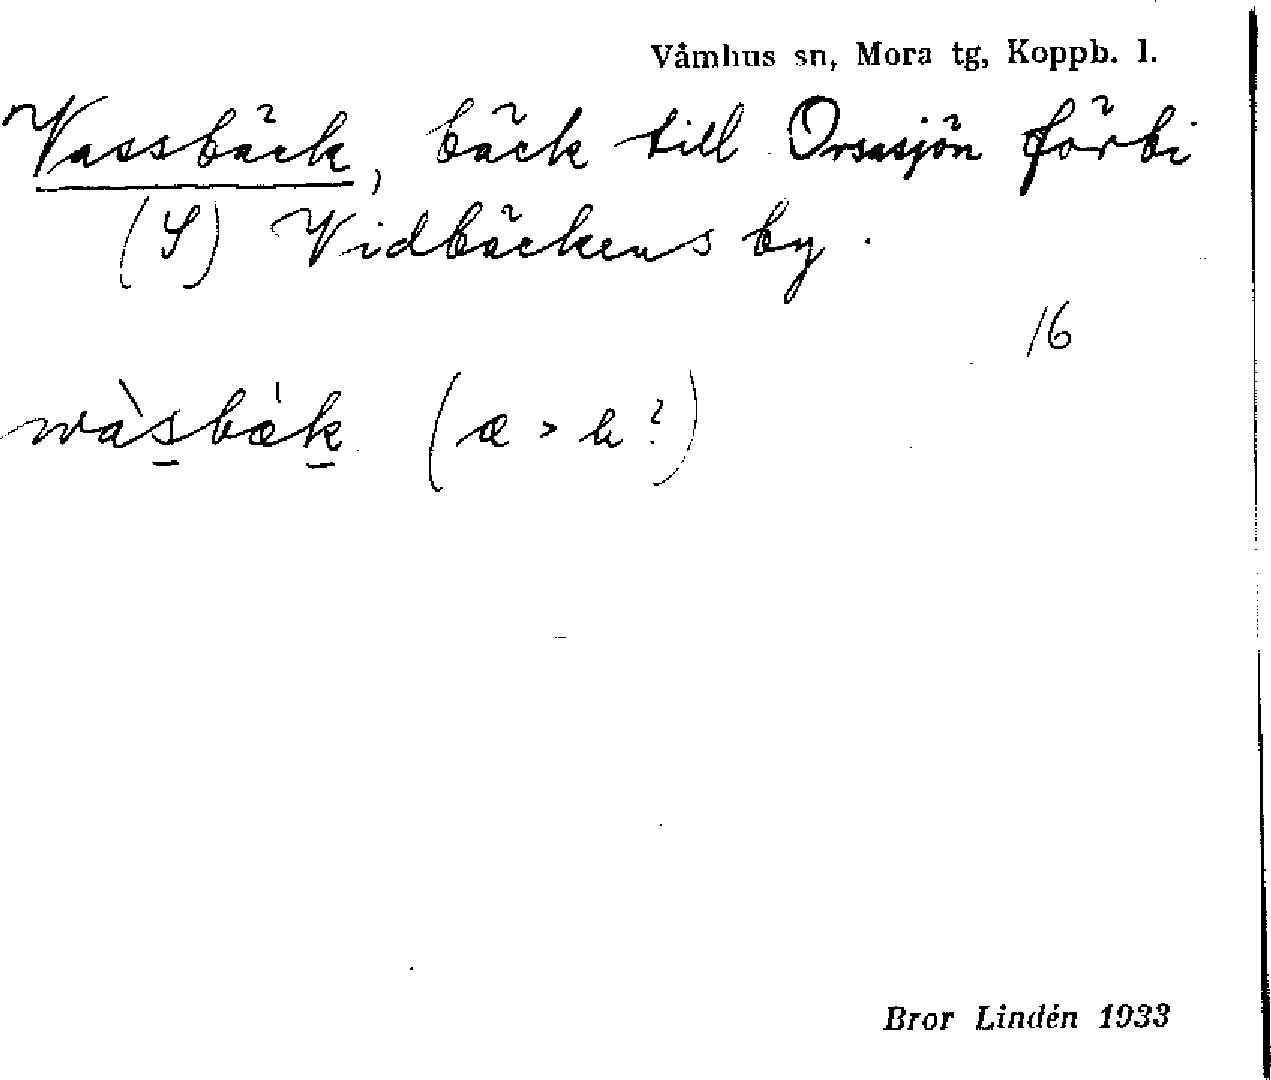 Våmhus sn, Mora tg, Koppb. l.
Vassbäck, bäck till Orsasjön förbi
(S) Vidbäckens by.
16
wàsbæ̀k (æ >
Bror Lindén 1933